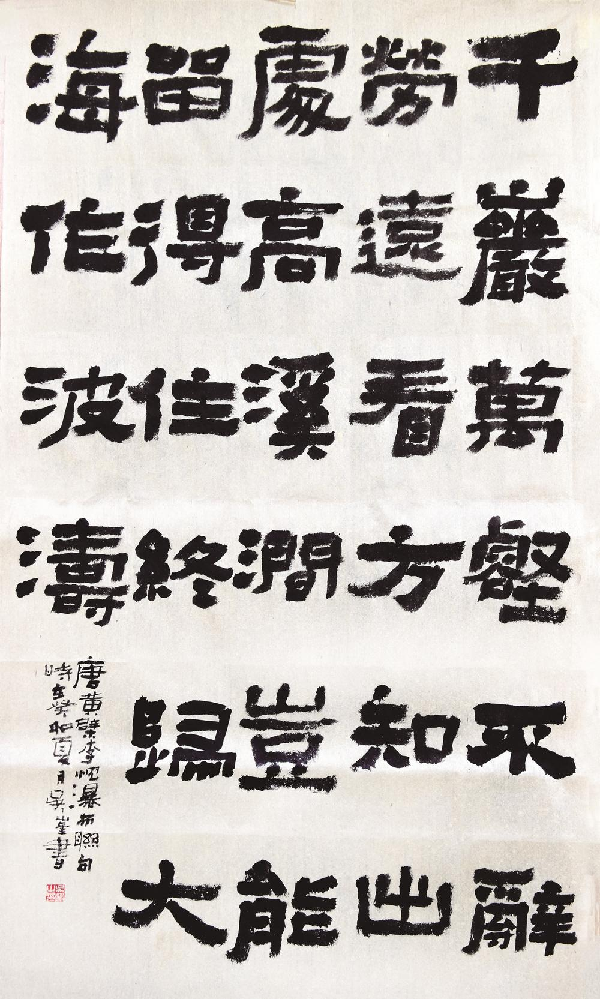 千巖萬壑不辭
勞遠看方知出
處高溪澗豈能
留得住終歸大
海作波濤
唐黃檗李忱瀑布聯句
時在癸卯夏月吳書